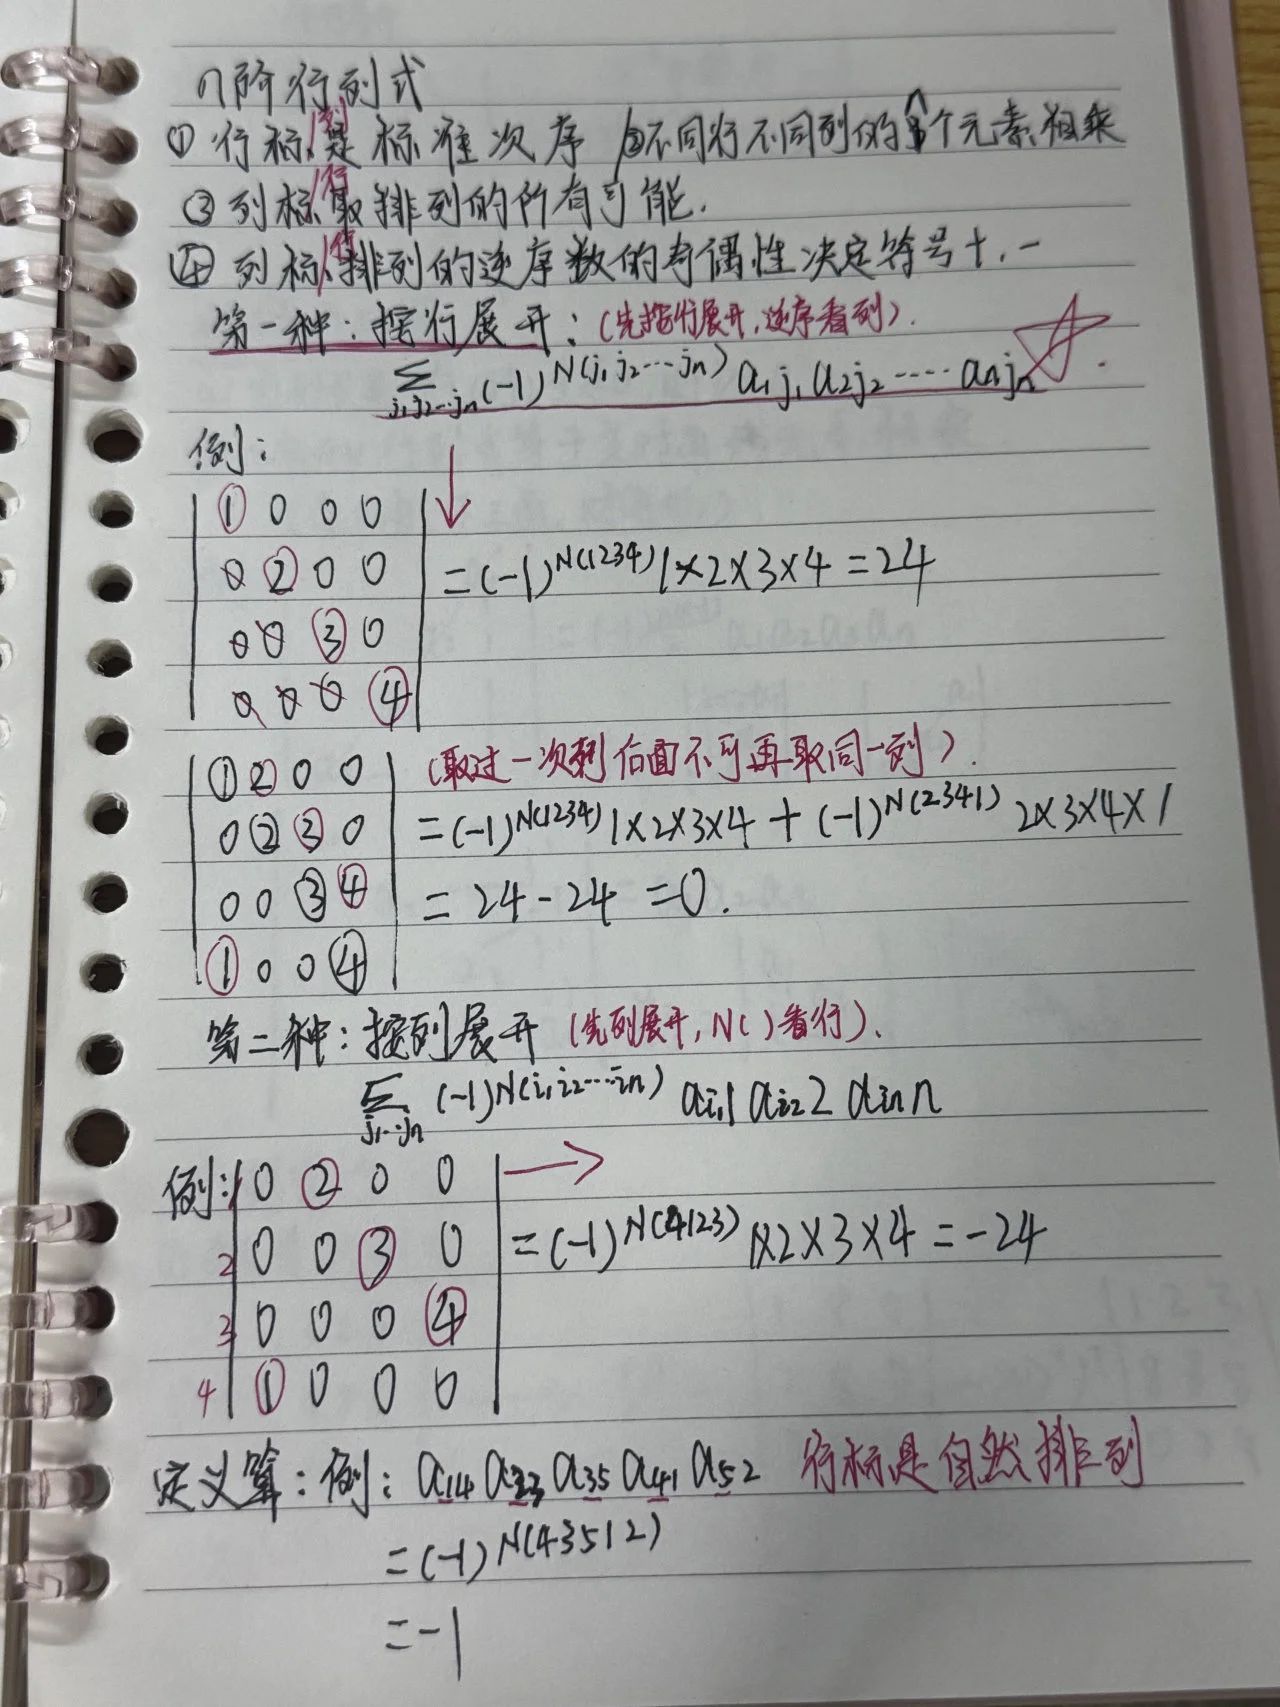 n阶行列式
① 行标/列是标准次序 ②不同行不同列的n个元素相乘
③ 列标/行取排列的所有可能.
④ 列标/行排列的逆序数的奇偶性决定符号+.-
第一种:按行展开:(先按行展开,逆序看列).
∑ j₁j₂…jₙ (-1)^N(j₁j₂…jₙ) a₁j₁ a₂j₂ ····· aₙjₙ
例:
1 0 0 0
0 2 0 0 =(-1)^N(1234) 1×2×3×4=24
0 0 3 0
0 0 0 4
1 2 0 0 (取过一次剩后面不可再取同一列).
0 2 3 0 =(-1)^N(1234) 1×2×3×4+(-1)^N(2341) 2×3×4×1
0 0 3 4 = 24-24 =0.
1 0 0 4
第二种:按列展开 (先列展开,N( )看行).
∑ j₁…jₙ (-1)^N(i₁i₂…iₙ) ai₁1 ai₂2 aiₙn
例: 1 0 2 0 0
2 0 0 3 0 =(-1)^N(4123) 1×2×3×4=-24
3 0 0 0 4
4 1 0 0 0
定义算:例:a₁₄ a₂₃ a₃₅ a₄₁ a₅₂ 行标是自然排列
=(-1)^N(43512)
=-1